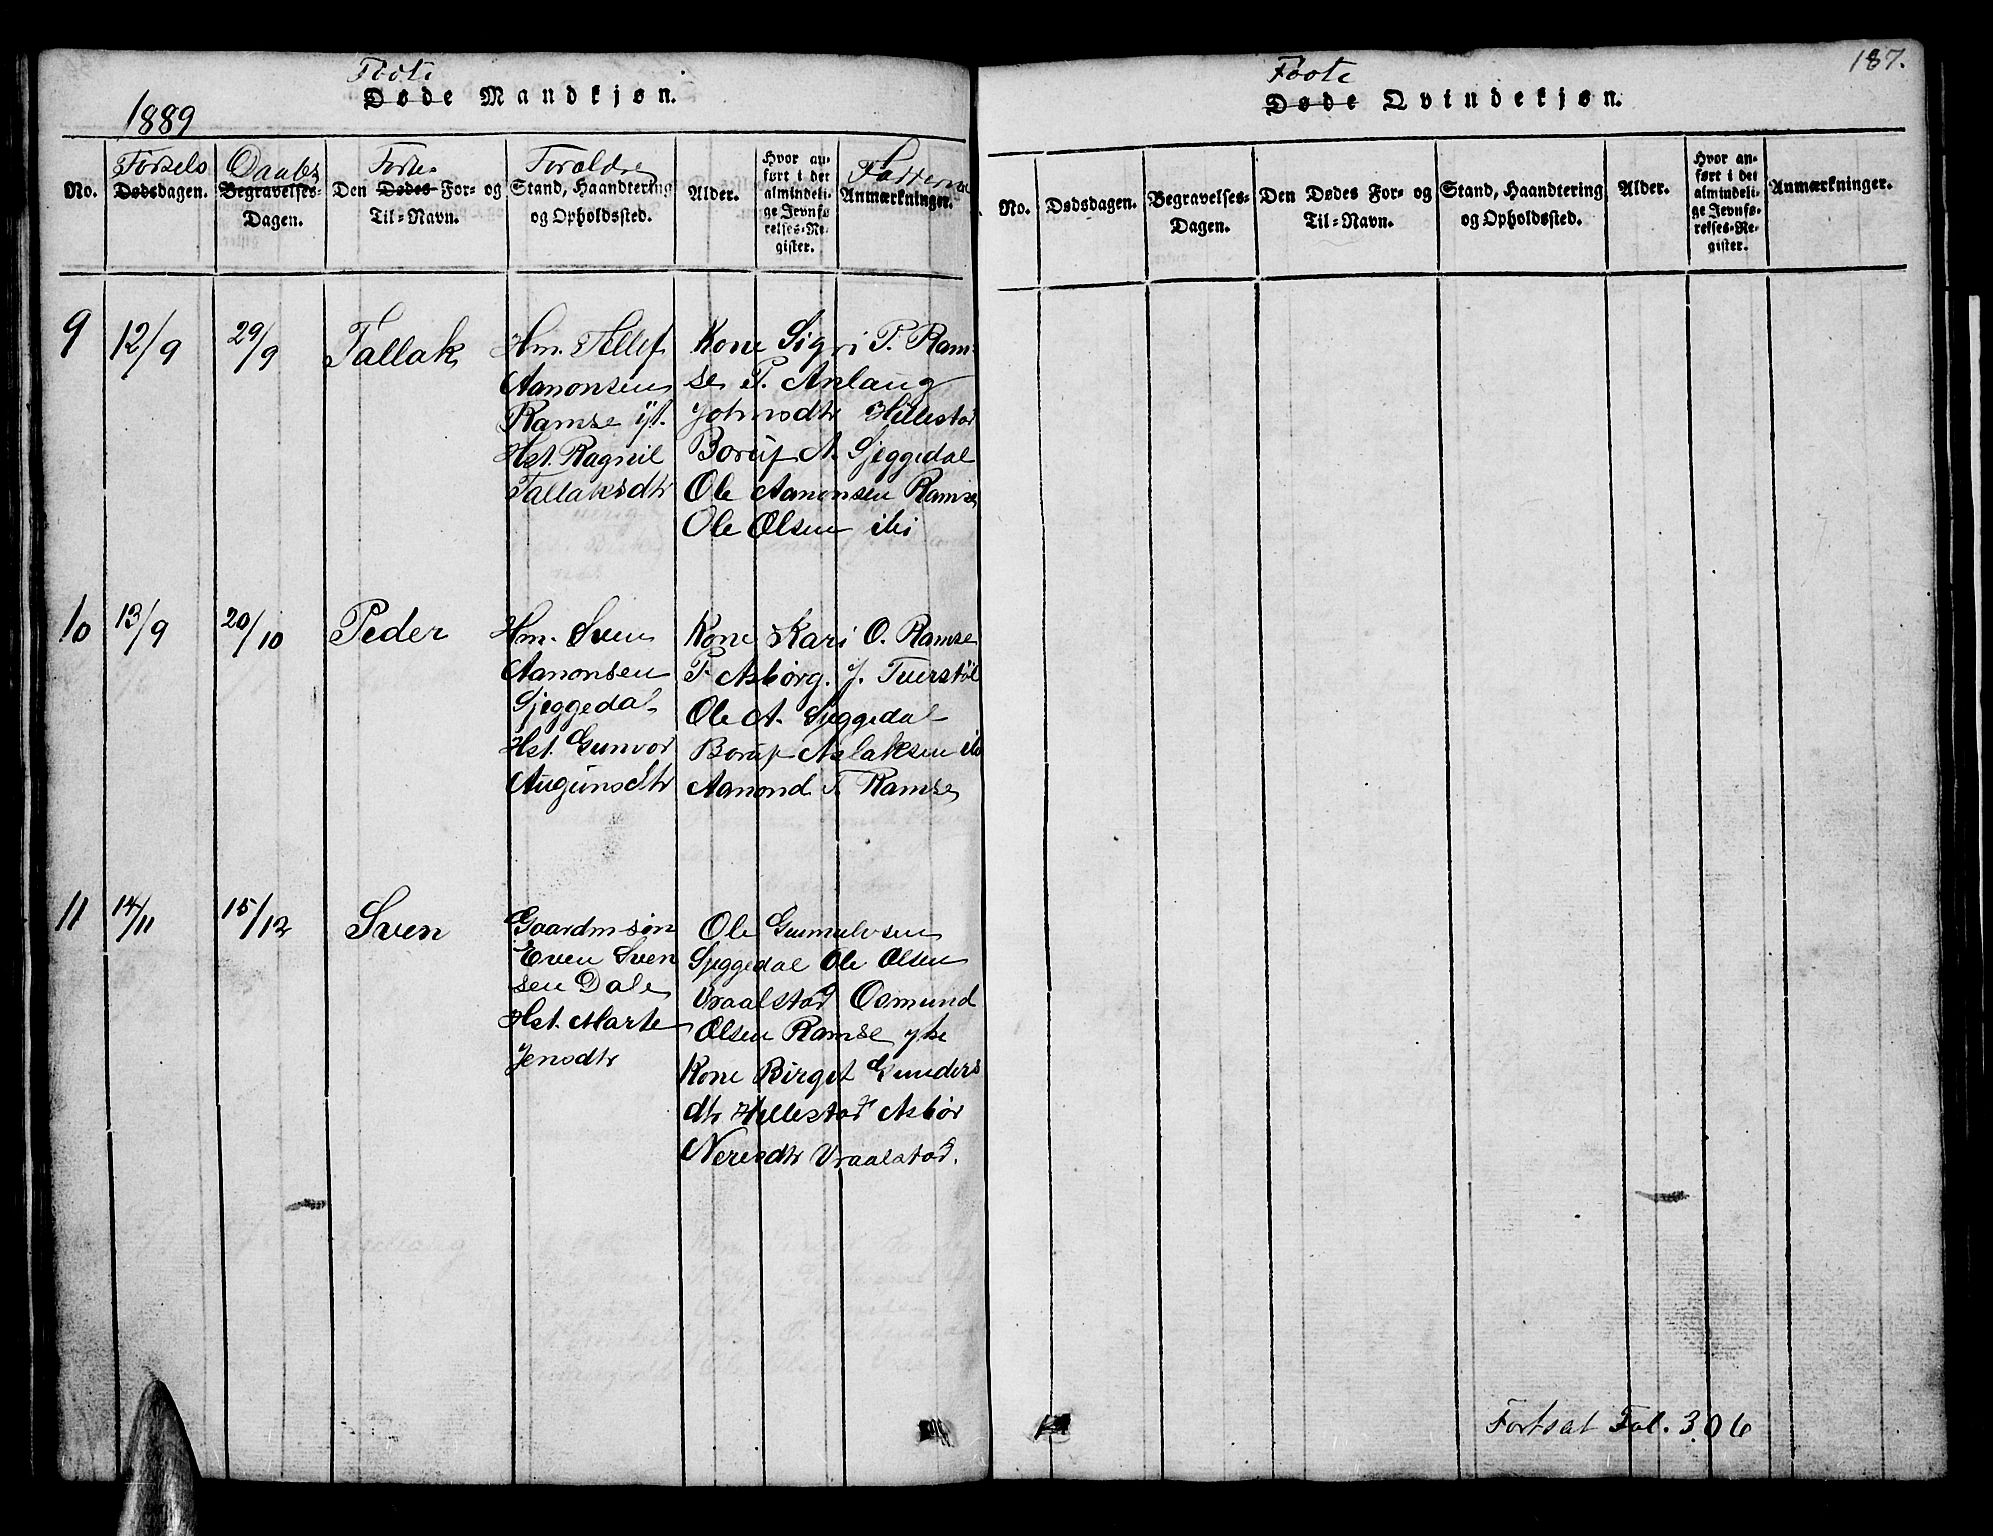 Fødte
Døde Mandkjøn.
1889
No.
Fødsels
Dødsdagen.
Daabs
Begravelses-
Dagen.
Den Dødes For- og
Til-Navn.
Forældre
Stand, Haandtering
og Opholdssted.
Alder.
Hvor an-
ført i det
almindeli-
ge Jevnfø-
relses-Re-
gister.
Fadderne
Anmærkninger.
9 12/9 29/9 Tallak
Hm. Tellef
Aanonsen
Ramse yt.
Hst. Ragnil
Tallaksdtr
Kone Sigri T. Ram-
se P. Aslaug
Johnsdtr Hillestad
Borup A. Sjeggedal
Ole Aanonsen Ramse
Ole Olsen ibi
10 13/9 20/10 Peder
Hm. Sven
Aanonsen
Sjeggedal
Hst. Gunvor
Augunsdtr
Kone Kari O. Ramse
P. Asbørg. J. Tuerstøl
Ole A. Sjeggedal
Borup Aslaksen ibi
Aanond T. Ramse
11 14/11 15/12 Sven
Gaardm søn
Even Sven
sen Dale
Hst. Marte
Jensdtr
Ole Gunnulvsen
Sjeggedal Ole Olsen
Vraalstad Osmund
Olsen Ramse
Kone Birget Gunders
dtr Hillestad Asbør
Neresdtr Vraalstad.
187.
Fødte
Døde Qvindekjøn.
No.
Dødsdagen.
Begravelses-
Dagen.
Den Dødes For- og
Til-Navn.
Stand, Haandtering
og Opholdssted.
Alder.
Hvor an-
ført i det
almindeli-
ge Jevnfø-
relses-Re-
gister.
Anmærkninger.
Fortsat Fol. 306